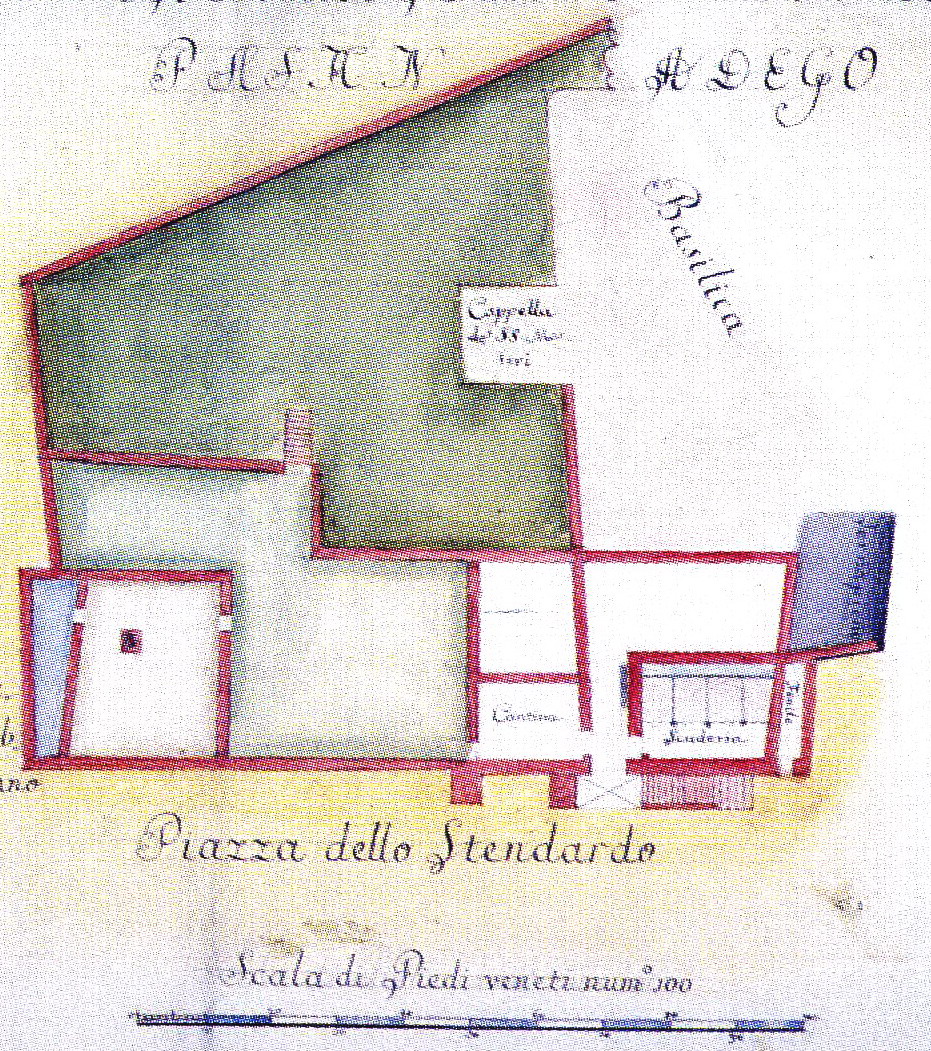 PASAN ADEGO
Basilica
Cappella
de' SS. Mar
tiri
Cantina
Scuderia
Fenile
ano
Piazza dello Stendardo
Scala di Piedi veneti num.º 100